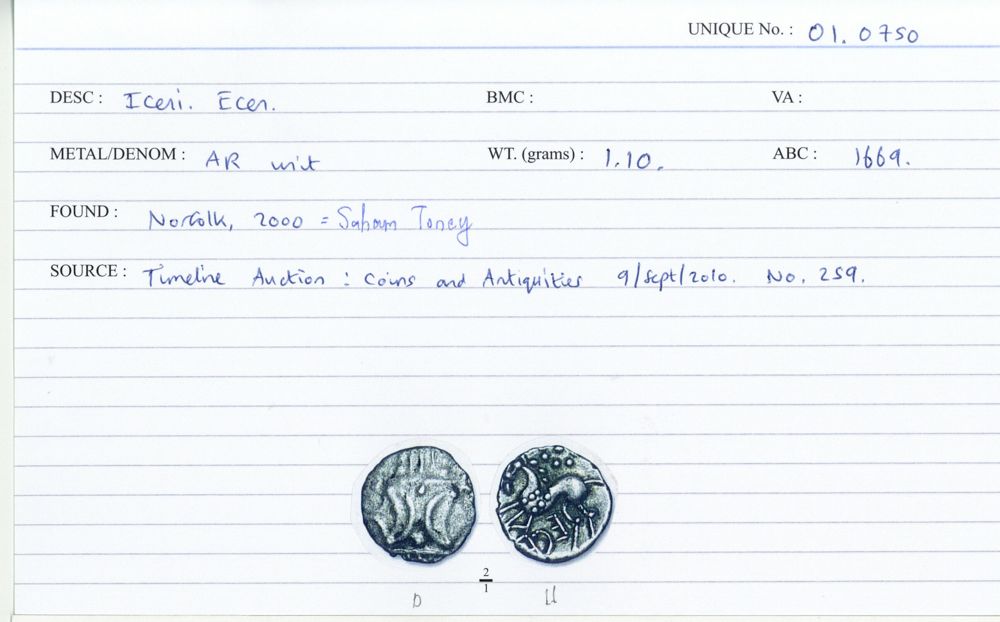 UNIQUE No. : 01. 0750
DESC : Iceni. Ecen. BMC : VA :
METAL/DENOM : AR unit WT. (grams) : 1.10. ABC : 1669.
FOUND : Norfolk, 2000 = Saham Toney
SOURCE : Timeline Auction : Coins and Antiquities 9/Sept/2010. No. 259.
2
1
D